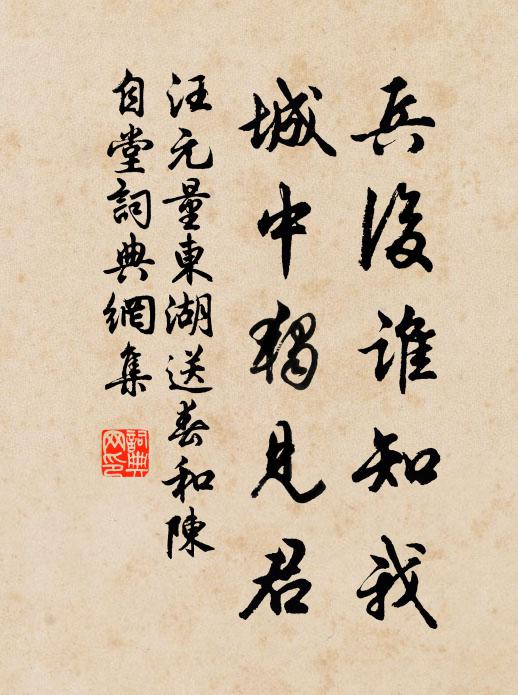 兵後誰知我
城中獨見君
汪元量東湖送春和陳
自堂詞典網集
詞典
网印